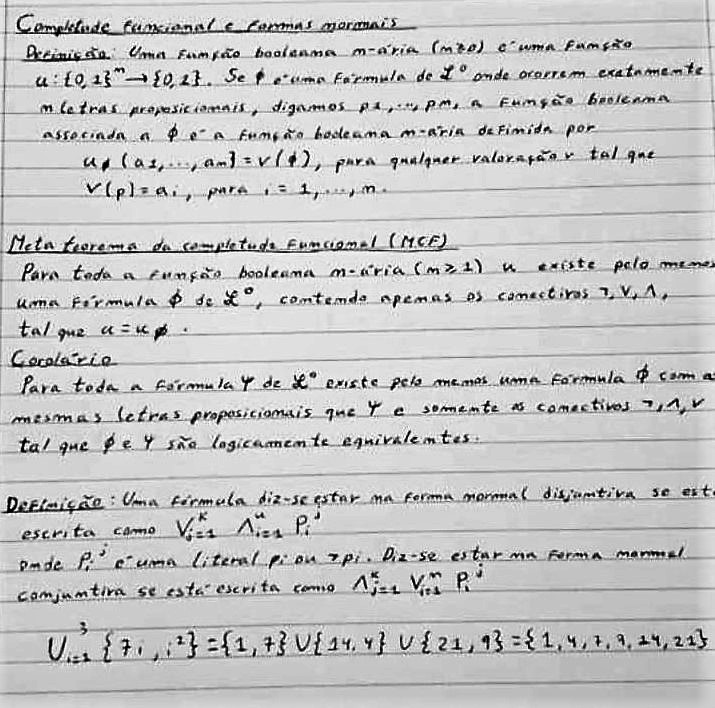 Completude funcional e formas normais
Definição: Uma função booleana n-ária (n≥0) é uma função
u: {0,1}ⁿ → {0,1}. Se ϕ é uma fórmula de ℒ⁰ onde ocorrem exatamente
n letras proposicionais, digamos p1,..., pn, a função booleana
associada a ϕ é a função booleana n-ária definida por
uϕ (a1,..., an) = v(ϕ), para qualquer valoração v tal que
V(p) = ai, para i = 1,..., n.
Meta teorema da completude funcional (MCF)
Para toda a função booleana n-ária (n≥1) u existe pelo menos
uma fórmula ϕ de ℒ⁰, contendo apenas os conectivos ¬, V, Λ,
tal que u = uϕ.
Corolário
Para toda a fórmula Ψ de ℒ⁰ existe pelo menos uma fórmula ϕ com a
mesmas letras proposicionais que Ψ e somente os conectivos ¬, Λ, V
tal que ϕ e Ψ são logicamente equivalentes.
Definição: Uma fórmula diz-se estar na forma normal disjuntiva se est
escrita como V Λ Pᵢʲ
onde Pᵢʲ é uma literal pi ou ¬pi. Diz-se estar na forma normal
conjuntiva se está escrita como Λᵏⱼ₌₁ Vⁿᵢ₌₁ Pᵢʲ
U³ᵢ₌₁ {7i, i²} = {1,7} U {14,4} U {21,9} = {1,4,7,9,14,21}